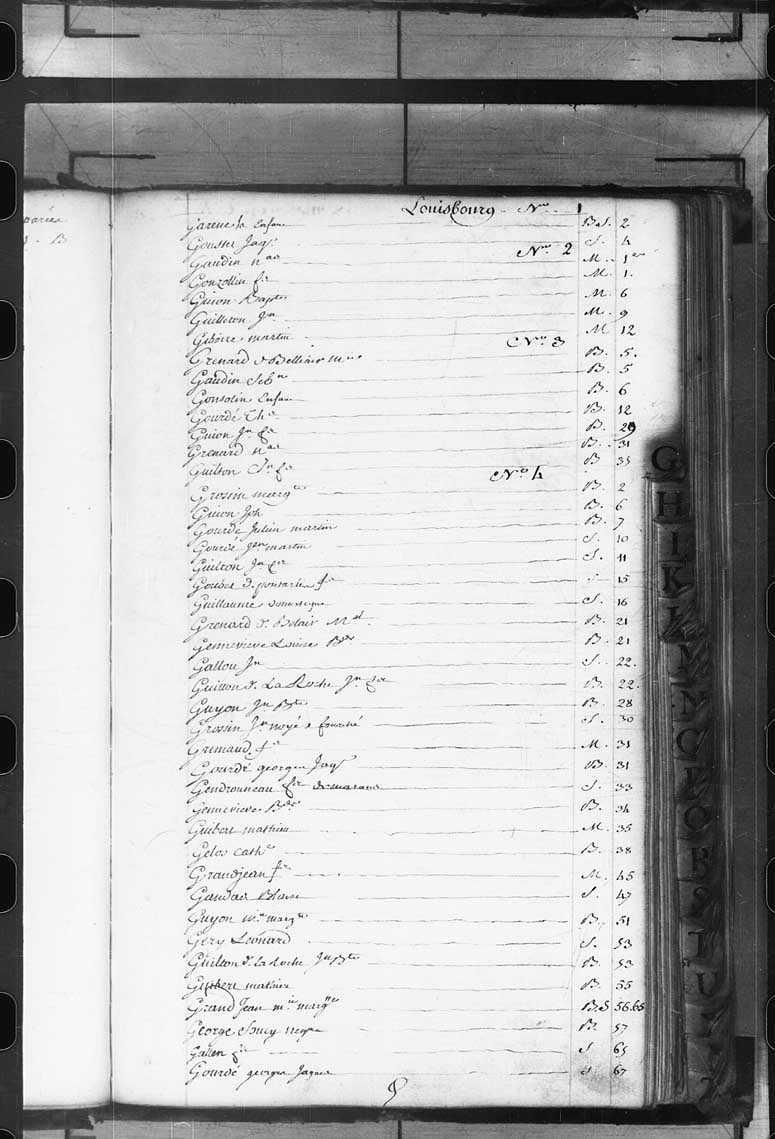 Louisbourg N.ro 1
Enfan B.S. 2
Gousse Jaq.s S. 4
N.ro 2
Gaudin N.as M. 1.er
Gonzollin f.se M. 1.
Guion Bapte M. 6
Guilleton J.n M. 9
Giboire martin M. 12
N.ro 3
Grenard d. Bellair M. B. 5.
Gaudin Seb.n B. 5
Gonsolin Enfan B. 6
Gourdé Th. B. 12
Guion J.n f.s B. 29
Grenard N.as B. 31
Guilton J.n f.s B 35
N.ro 4
Grossin marg.te B. 2
Guion Jph B. 6
Gourdé Julien martin B. 7
Gourdé J.n martin S. 10
Guilton J.n f.s S. 11
Goubet d. ponsarde f.s S. 15
Guillaume Domestique S. 16
Grenard d. Belair M.el B. 21
Gennevieve Louise B. 21
Gallou J.n S. 22.
Guitton d. La Roche J.n f.s B. 22.
Guyon J.n B.te B. 28
Grossin J.n noyé & S. 30
Grimaud f.s M. 31
Gourdé georges Jaq.s B. 31
Gendronneau f.s demarane S. 33
Gennevieve B. 34
Guibert mathieu M. 35
Gelos Cath.e B. 38
Grandjean f.s M. 45
Blaise S. 47
Guyon M.ie marg.te B. 51
Gery Léonard S. 53
Guilton d. La Roche J.n B.te B. 53
Guibert mathieu B. 55
Grand Jean m.ie marg.te B.S 56.65
George Soucy negre B. 57
f.s S 65
Gourdé georges Jaques S 67
G
H
I
K
L
M
N
O
P
Q
R
S
T
U